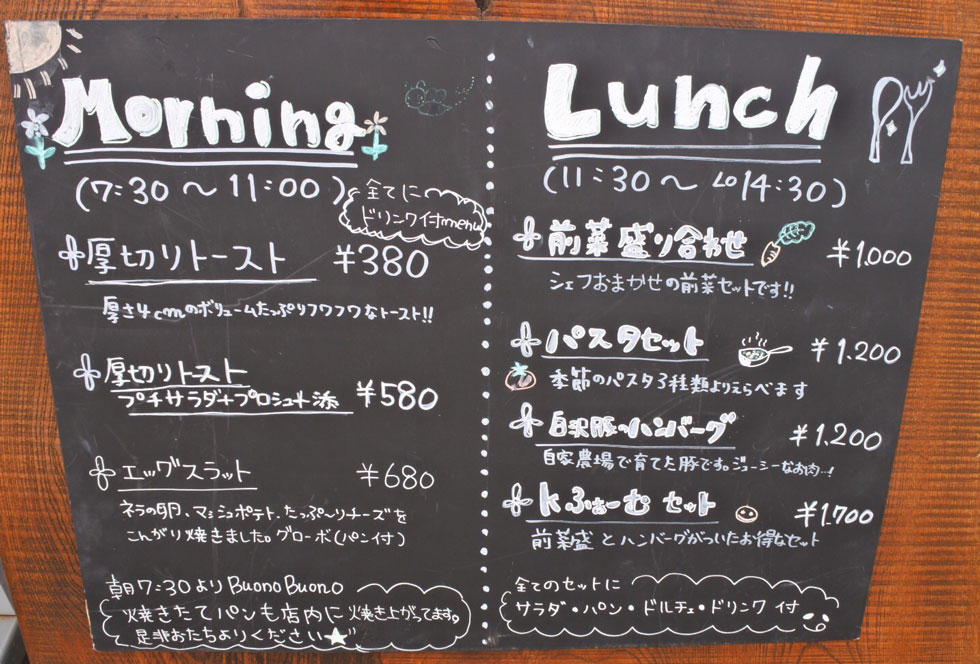 Morning
(7:30〜11:00)
全てに
ドリンク付menu
厚切りトースト ¥380
厚さ4cmのボリュームたっぷりフワフワなトースト!!
厚切りトースト
プチサラダ+プロシュート添 ¥580
エッグスラット ¥680
卵、マッシュポテト、たっぷ〜りチーズを
こんがり焼きました。グローボ(パン付)
朝7:30より Buono Buono
焼きたてパンも店内に焼き上がってます。
是非おたちよりください★
Lunch
(11:30〜Lo14:30)
前菜盛り合わせ ¥1.000
シェフおまかせの前菜セットです!!
パスタセット ¥1.200
季節のパスタ3種類よりえらべます
白沢豚のハンバーグ ¥1.200
自家農場で育てた豚です。ジューシーなお肉…!
kふぁーむ セット ¥1.700
前菜盛とハンバーグがついたお得なセット
全てのセットに
サラダ・パン・ドルチェ・ドリンク 付